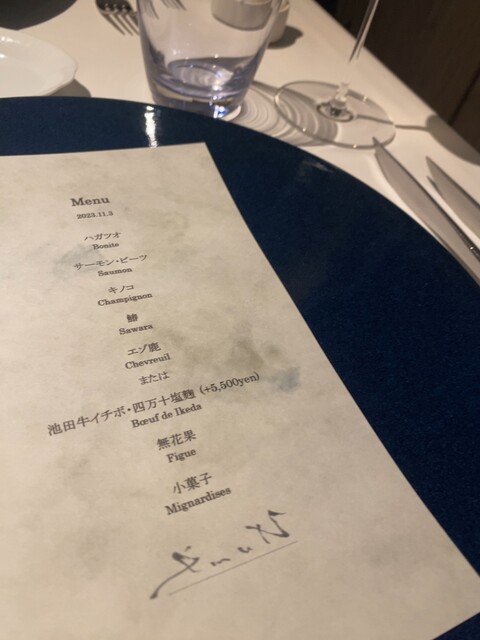 Menu
2023.11.3
ハガツオ
Bonite
サーモン・ビーツ
Saumon
キノコ
Champignon
鰆
Sawara
エゾ鹿
Chevreuil
または
池田牛イチボ・四万十塩麴 (+5,500yen)
Bœuf de Ikeda
無花果
Figue
小菓子
Mignardises